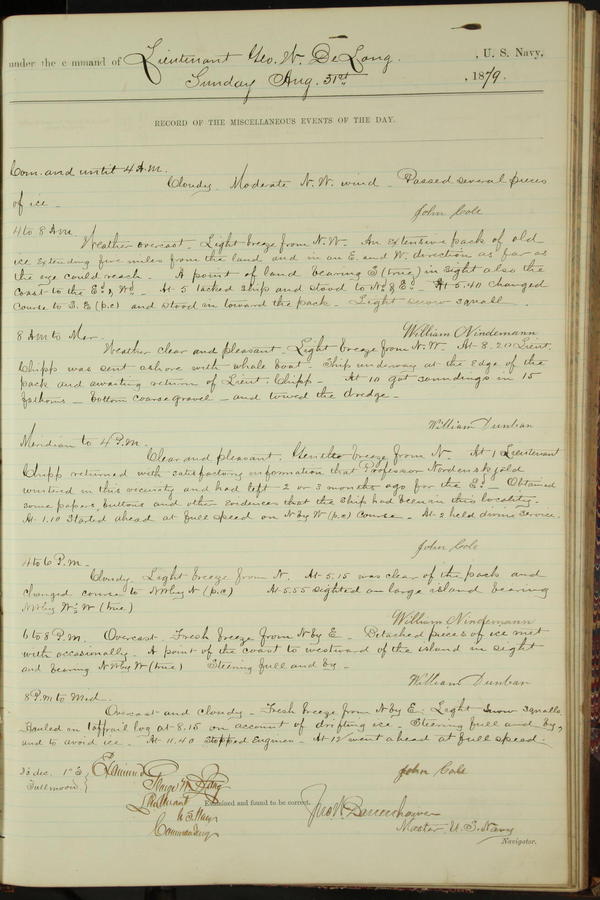 under the command of Lieutenant Geo. W. De Long. , U. S. Navy,
Sunday Aug. 31st , 1879.
RECORD OF THE MISCELLANEOUS EVENTS OF THE DAY.
Com. and until 4 A.M.
Cloudy. Moderate N.W. wind. Passed several pieces
of ice.
John Cole
4 to 8 A.M.
Weather overcast. Light breeze from N.W. An extensive pack of old
ice extending five miles from the land and in an E. and W. direction as far as
the eye could reach. A point of land bearing S (true) in sight also the
coast to the Ed. & Wd. At 5 tacked ship and stood to Nd. & Ed. At 5.40 changed
course to S. E (p.c) and stood in toward the pack. Light snow squall.
William Nindemann
8 A.M to Mer.
Weather clear and pleasant. Light breeze from N.W. At 8.20 Lieut.
Chipp was sent ashore with whale boat. Ship underway at the edge of the
pack and awaiting return of Lieut. Chipp. At 10 got soundings in 15
fathoms bottom coarse gravel and towed the dredge.
William Dunbar
Meridian to 4 P.M.
Clear and pleasant. Gentle breeze from N. At 1 Lieutenant
Chipp returned with satisfactory information that Professor Nordenskjold
wintered in this vicinity and had left 2 or 3 months ago for the Ed. Obtained
some papers, buttons and other evidences that the ship had been in this locality.
At 1.10 started ahead at full speed on N by W (p.c) course. At 2 held divine service.
John Cole
4 to 6 P.M.
Cloudy. Light breeze from N. At 5.15 was clear of the pack and
changed course to NW by N (p.c) At 5.55 sighted a large island bearing
NW by W ½ W (true)
William Nindemann
6 to 8 P.M. Overcast. Fresh breeze from N by E. Detached pieces of ice met
with occasionally. A point of the coast to westward of the island in sight
and bearing NW by W (true) Steering full and by.
William Dunbar
8 P.M to Mid.
Overcast and cloudy. Fresh breeze from N by E. Light snow squalls.
Hauled in taffrail log at 8.15 on account of drifting ice. Steering full and by,
and to avoid ice. At 11.40 stopped engines. At 12 went ahead at full speed.
John Cole
Full moon.
Examined
George W. De Long
Lieutenant
U. S. Navy
Commanding
Examined and found to be correct.
Jno. W. Danenhower
Master U. S. Navy
Navigator.